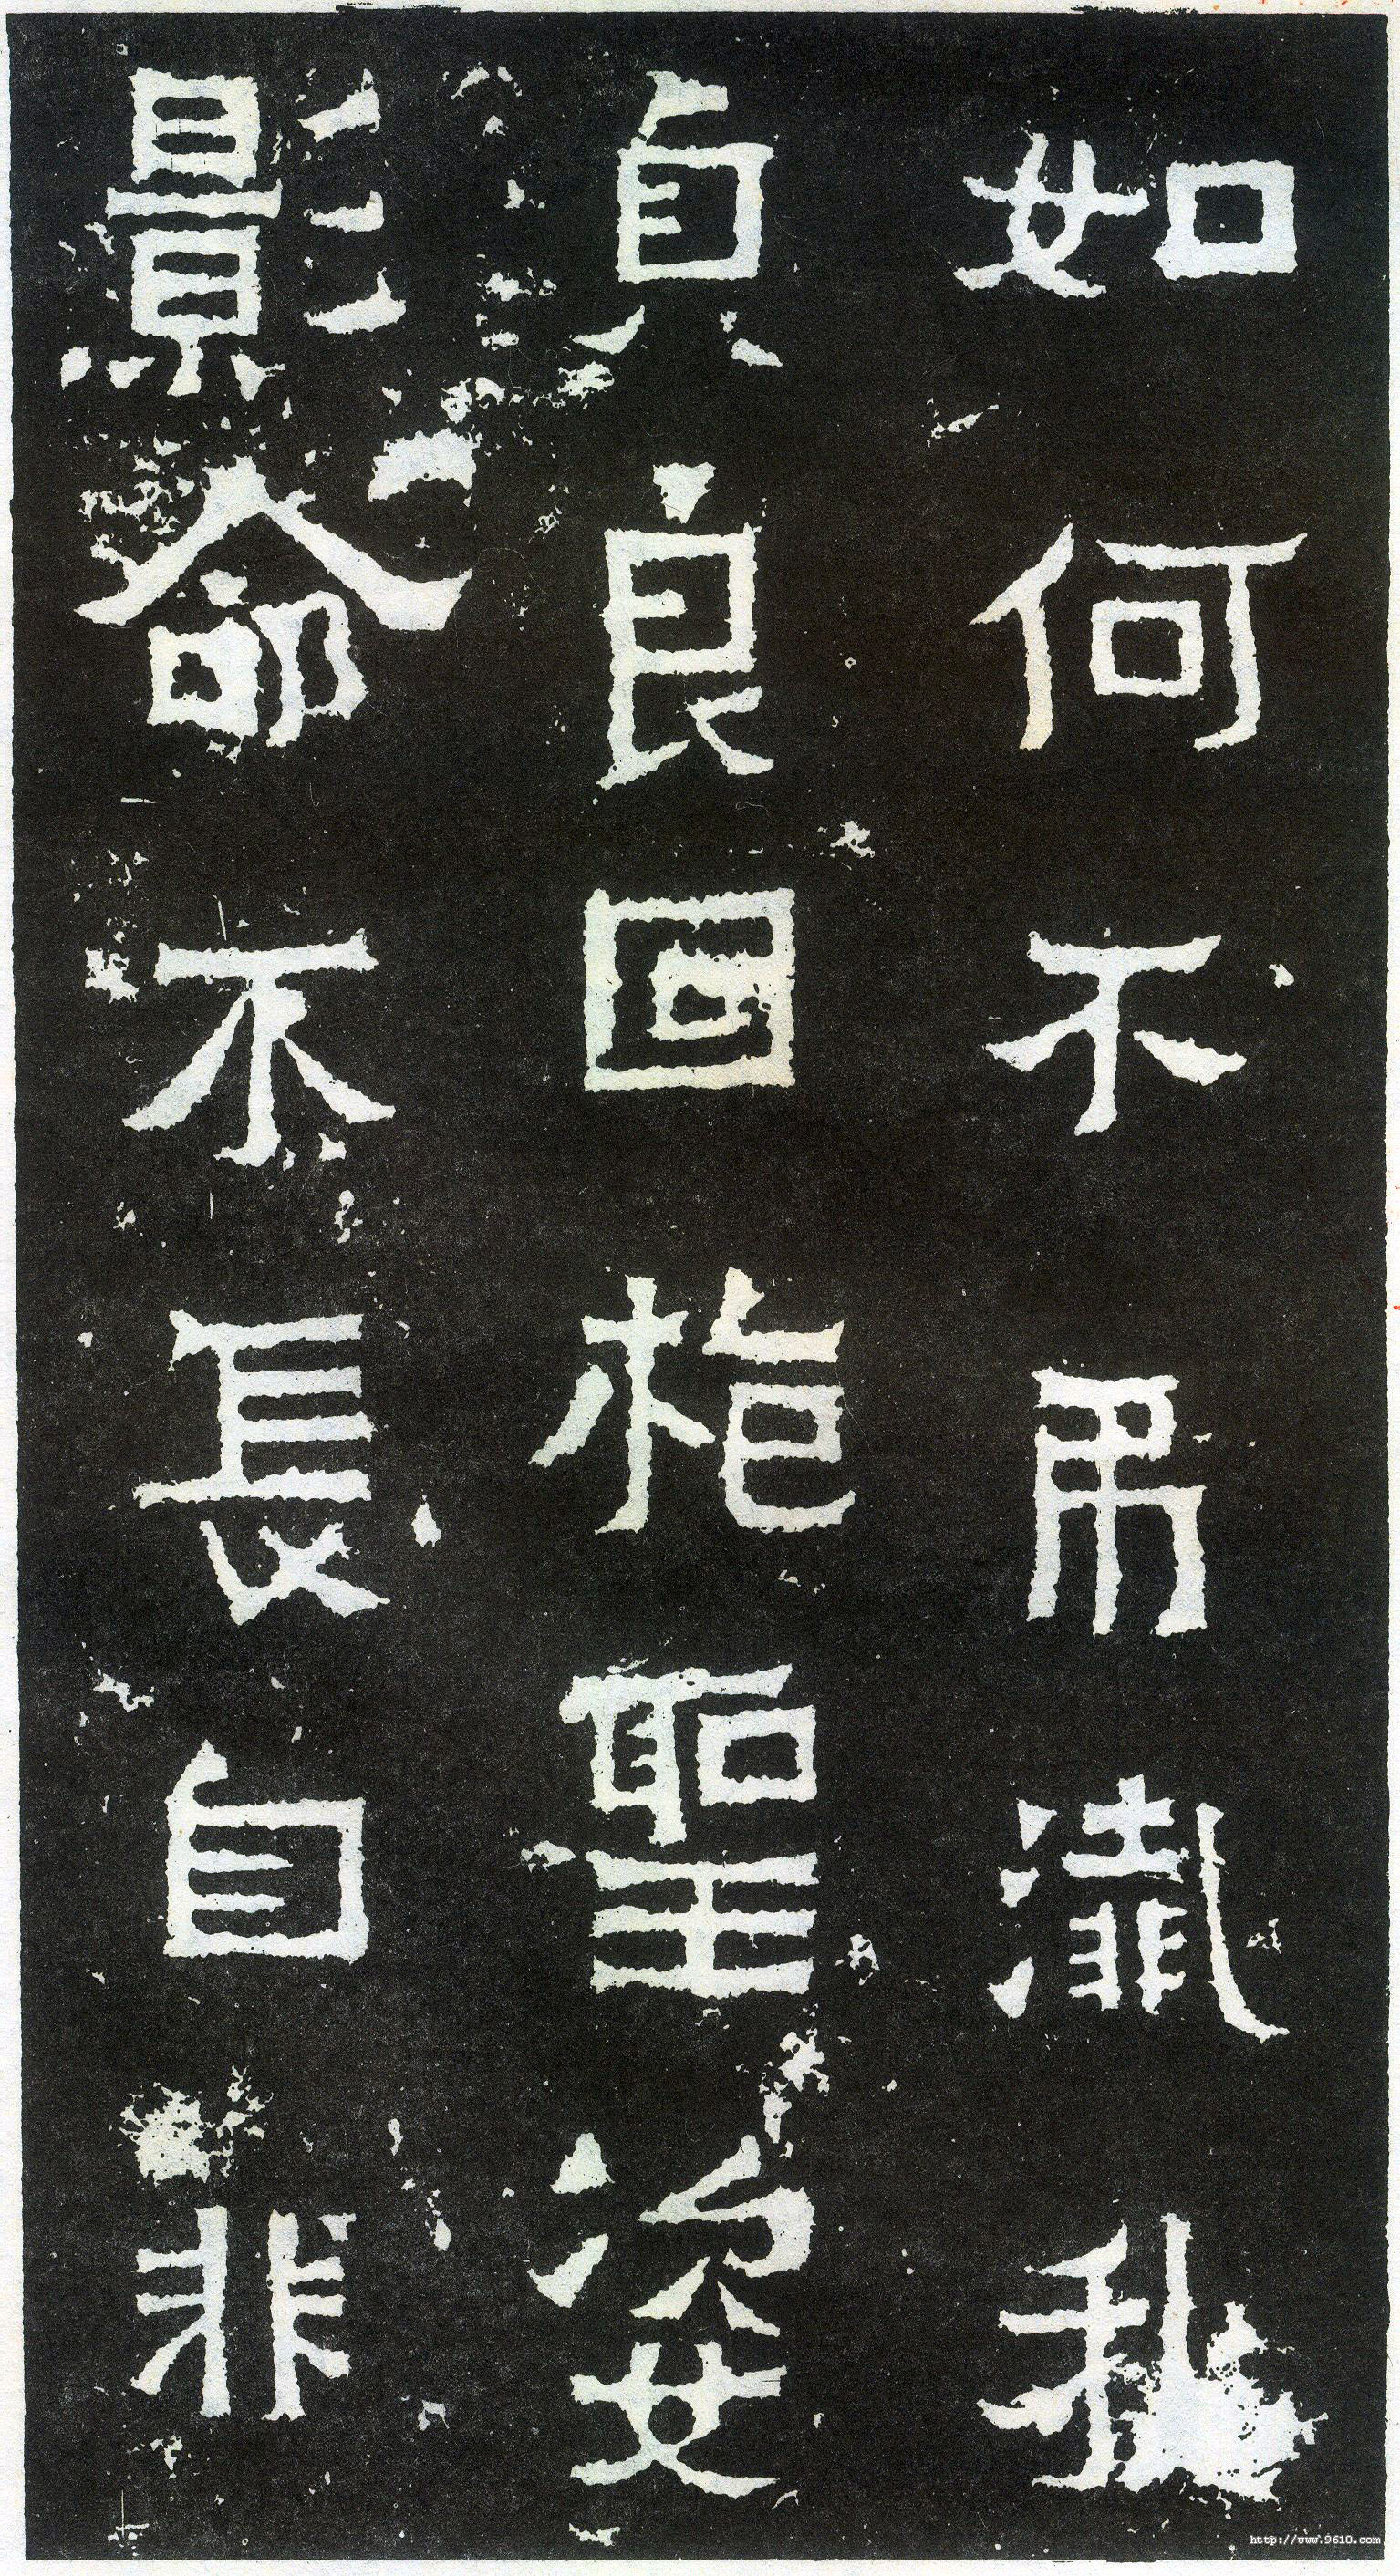 如何不吊瀸我
貞良回枹聖姿
影命不長自非
http://www.9610.com